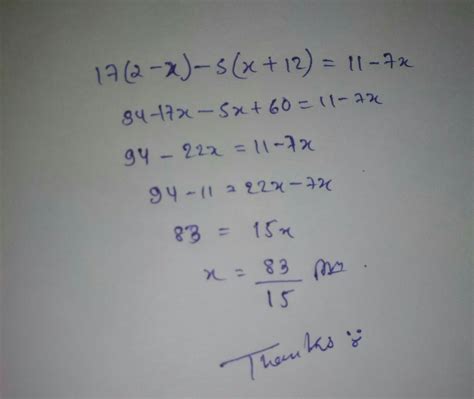 17(2-x)-5(x+12) = 11-7x
34-17x-5x+60 = 11-7x
94 - 22x = 11-7x
94-11 = 22x-7x
83 = 15x
x = 83/15 Ans.
Thanks